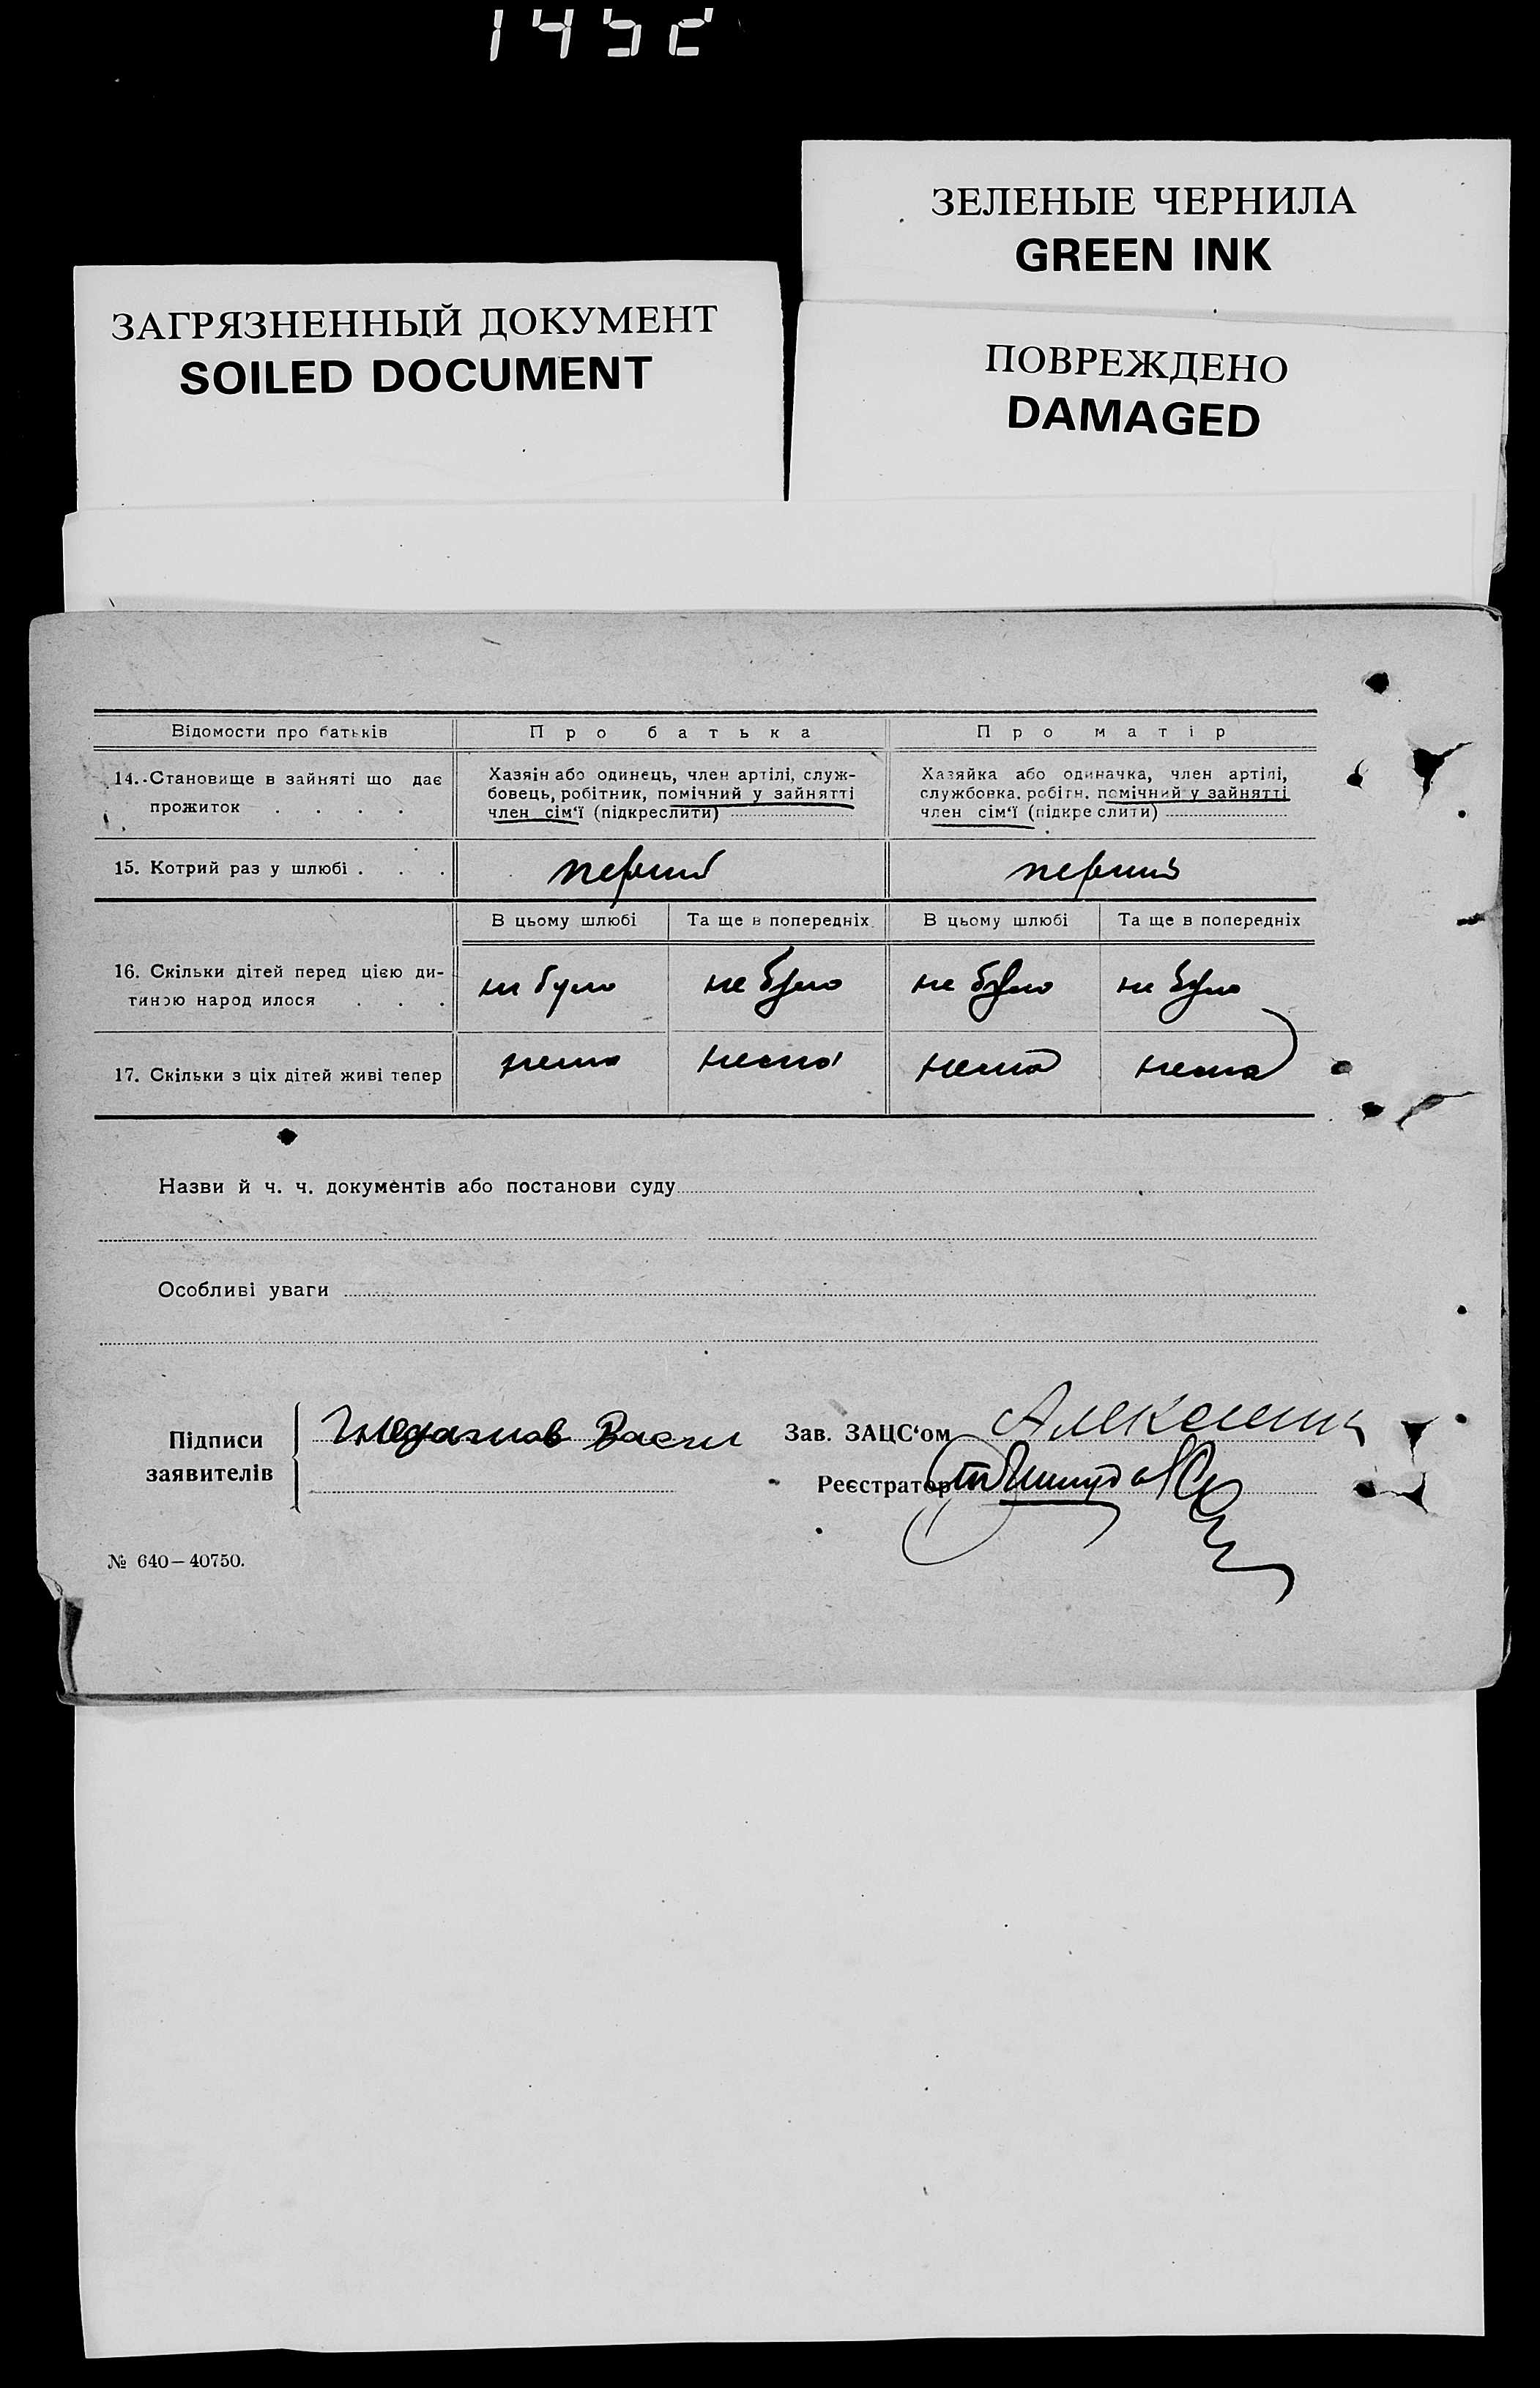 1452
ЗЕЛЕНЫЕ ЧЕРНИЛА
GREEN INK
ЗАГРЯЗНЕННЫЙ ДОКУМЕНТ
SOILED DOCUMENT
ПОВРЕЖДЕНО
DAMAGED
Відомости про батьків Про батька Про матір
14. Становище в зайняті що дає прожиток . . . .
Хазяїн або одинець, член артілі, служ-
бовець, робітник, помічний у зайнятті
член сім'ї (підкреслити)
Хазяйка або одиначка, член артілі,
службовка, робітн. помічний у зайнятті
член сім'ї (підкреслити)
15. Котрий раз у шлюбі . . . первий первий
В цьому шлюбі Та ще в попередніх В цьому шлюбі Та ще в попередніх
16. Скільки дітей перед цією ди-
тиною народилося . . . не було не було не було не було
17. Скільки з ціх дітей живі тепер нема нема нема нема
Назви й ч. ч. документів або постанови суду
Особливі уваги
Підписи
заявителів
Васил
Зав. ЗАЦС'ом
Реєстратор
№ 640—40750.